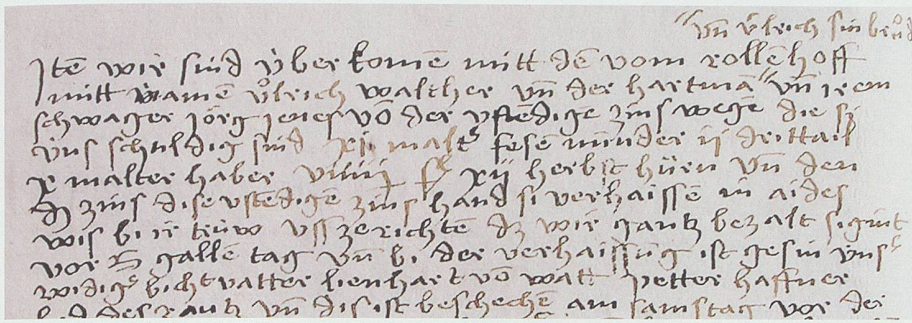 vn̄ vͦlrich sin brůd
Itē wir sind v̈berkomē mitt dē vom rollēhoff
mitt namē vͦlrich walther vn̄ der hartmā vn̄ irem
schwager jörg jenes vō der vstēdige zins wege die si
v̈ns schuldig sind xj malt fesē minder ij drittail
x malter haber xij herbst hu̇rn vn̄ den
dz zins dise vstēdigē zins hand si verhaissē in aides
wis bi ir trüw vss ze richtē dz wir gantz bezalt sigint
vor S gallē tag vn̄ bi der verhaissūg ist gesin v̈ns
widigē bichtvatter lienhart vō watt petter haffner
vn̄ dis ist beschechē am samstag vor der